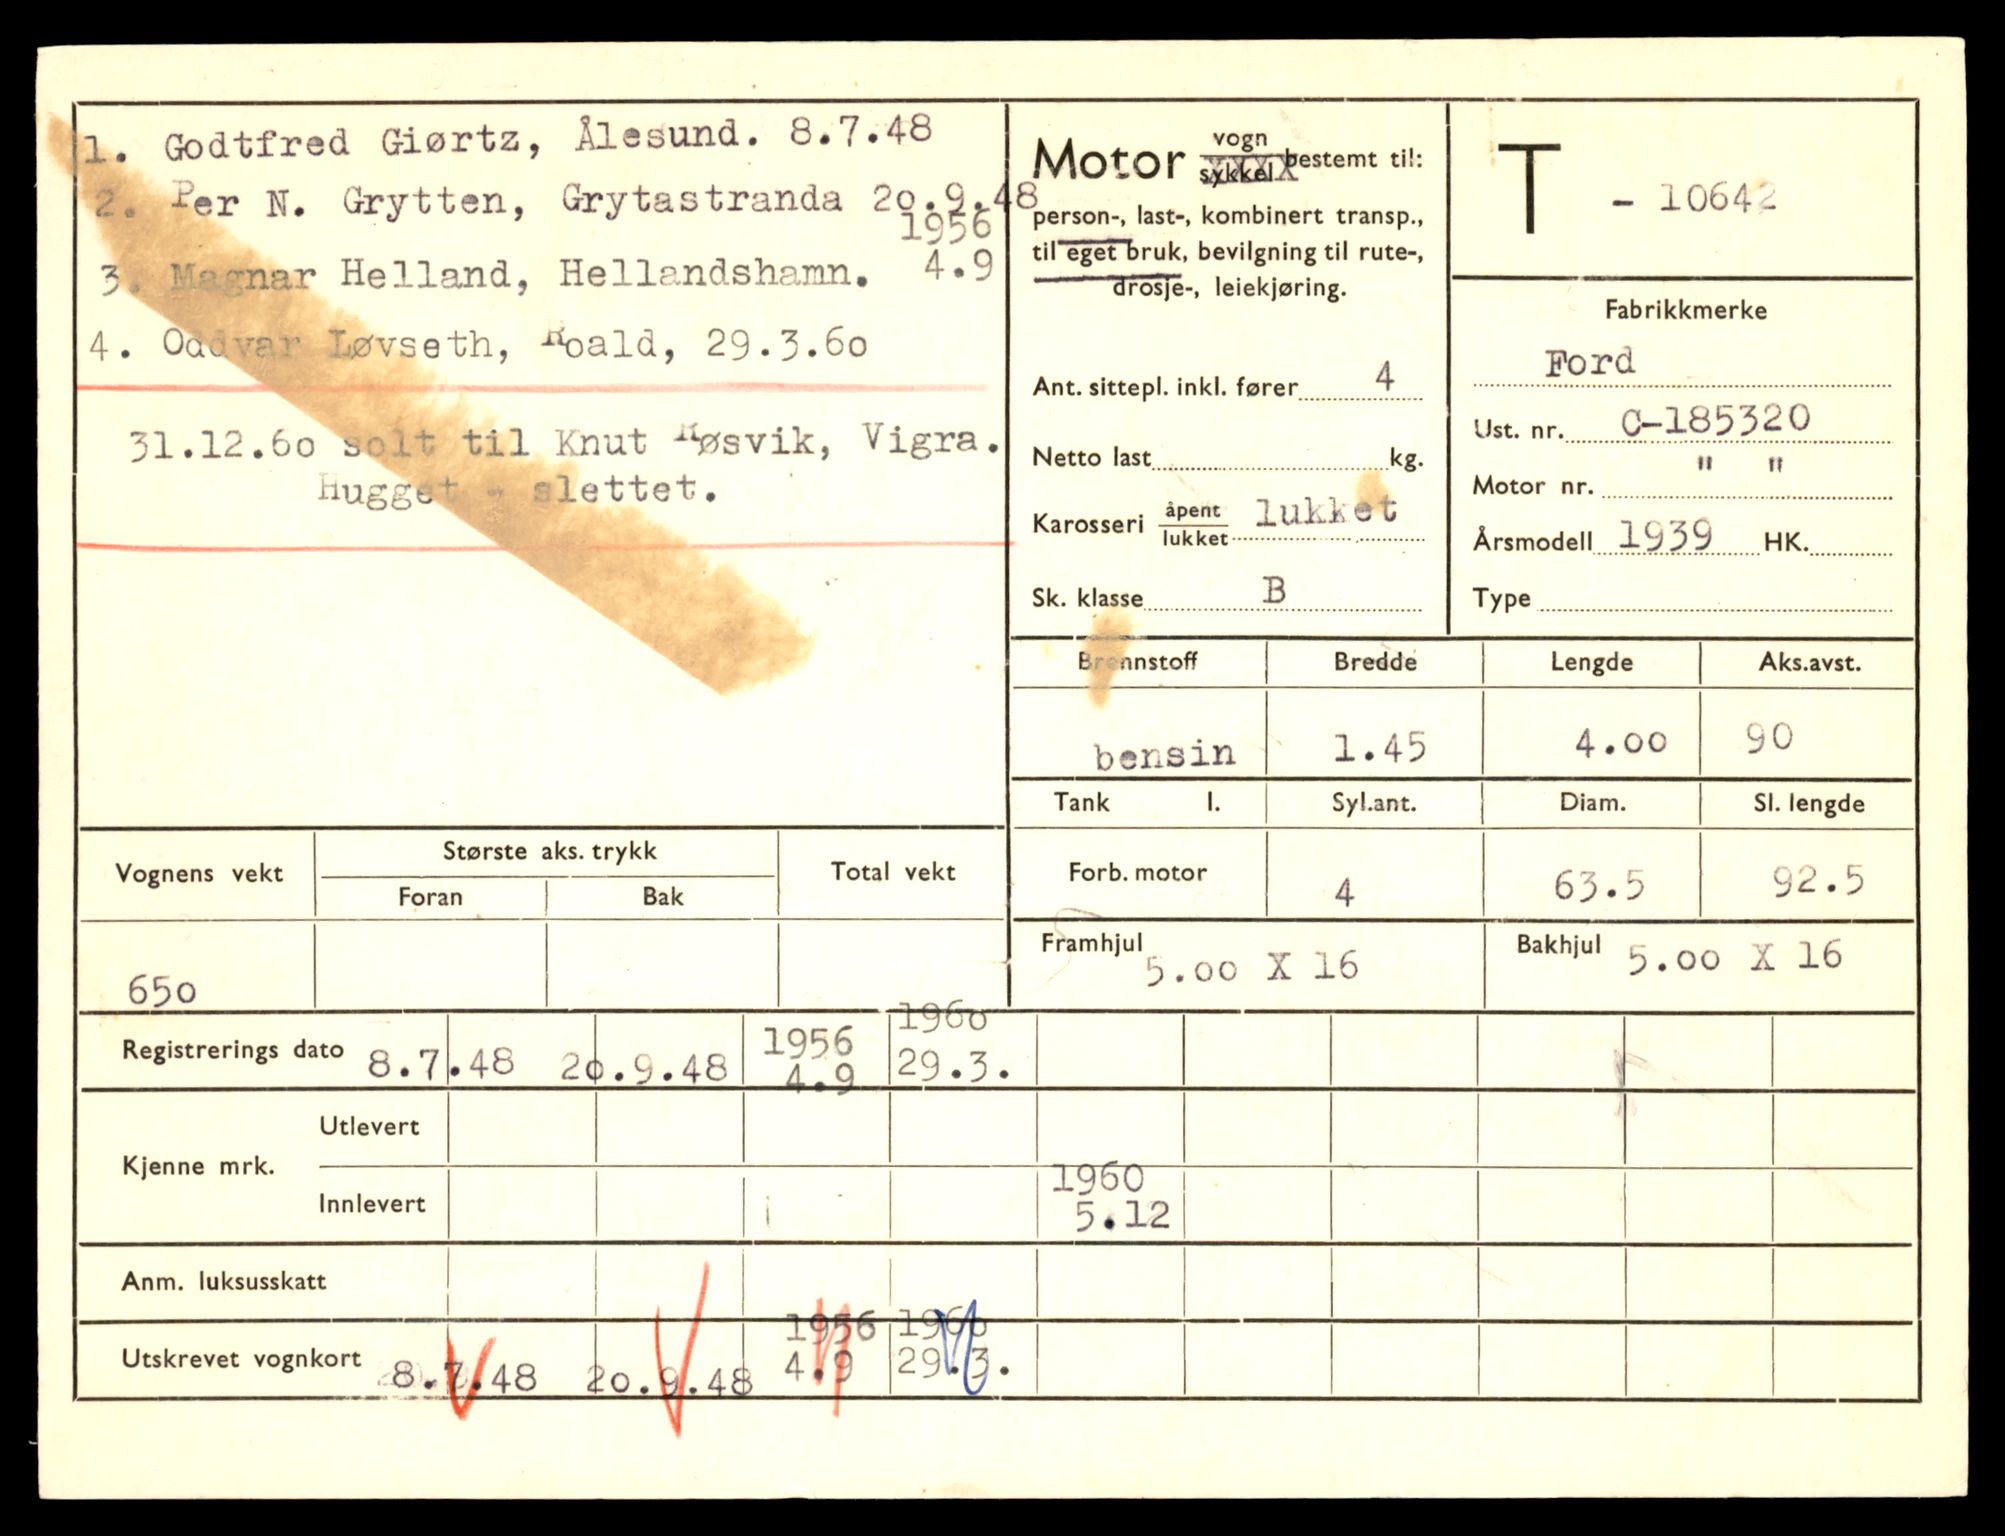 1. Godtfred Giørtz, Ålesund. 8.7.48
2. Per N. Grytten, Grytastranda 20.9.48
1956
3. Magnar Helland, Hellandshamn. 4.9
4. Oddvar Løvseth, Roald, 29.3.60
31.12.60 solt til Knut Røsvik, Vigra.
Hugget - slettet.
Motor vogn sykkel bestemt til:
person-, last-, kombinert transp.,
til eget bruk, bevilgning til rute-,
drosje-, leiekjøring.
Ant. sittepl. inkl. fører 4
Netto last kg.
Karosseri åpent lukket lukket
Sk. klasse B
T - 10642
Fabrikkmerke
Ford
Ust. nr. C-185320
Motor nr. " "
Årsmodell 1939 HK.
Type
Brennstoff Bredde Lengde Aks.avst.
bensin 1.45 4.00 90
Tank l. Syl.ant. Diam. Sl. lengde
Forb. motor 4 63.5 92.5
Framhjul 5.00 X 16 Bakhjul 5.00 X 16
Vognens vekt Største aks. trykk Total vekt
Foran Bak
650
Registrerings dato 8.7.48 20.9.48 1956 4.9 1960 29.3.
Kjenne mrk. Utlevert
Innlevert 1960 5.12
Anm. luksusskatt
Utskrevet vognkort 8.7.48 20.9.48 1956 4.9 1960 29.3.